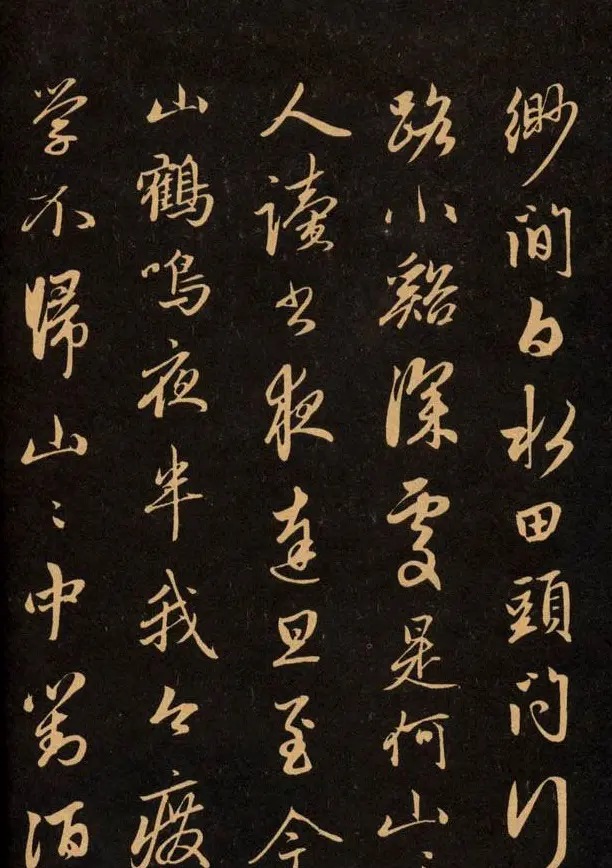 緲間白水田頭問行
路小谿深處是何山〻
人讀書夜達旦至今
山鶴鳴夜半我今廢
学不歸山〻中對酒